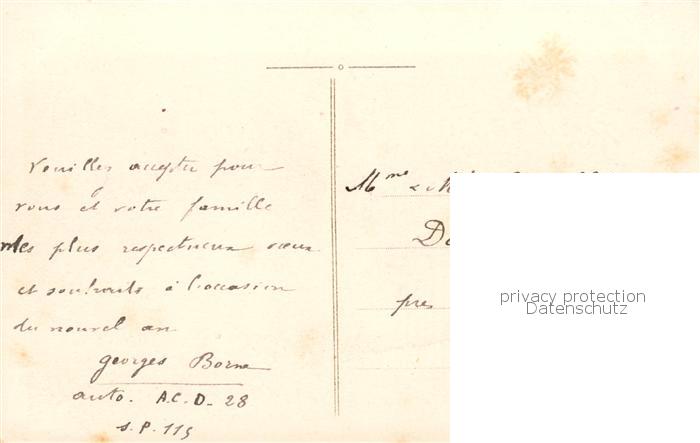 Veuillez accepter pour
vous et votre famille
mes plus respectueux vœux
et souhaits à l'occasion
du nouvel an
georges Borne
auto. A.C.D. 28
S.P. 115
Mme
près
privacy protection
Datenschutz